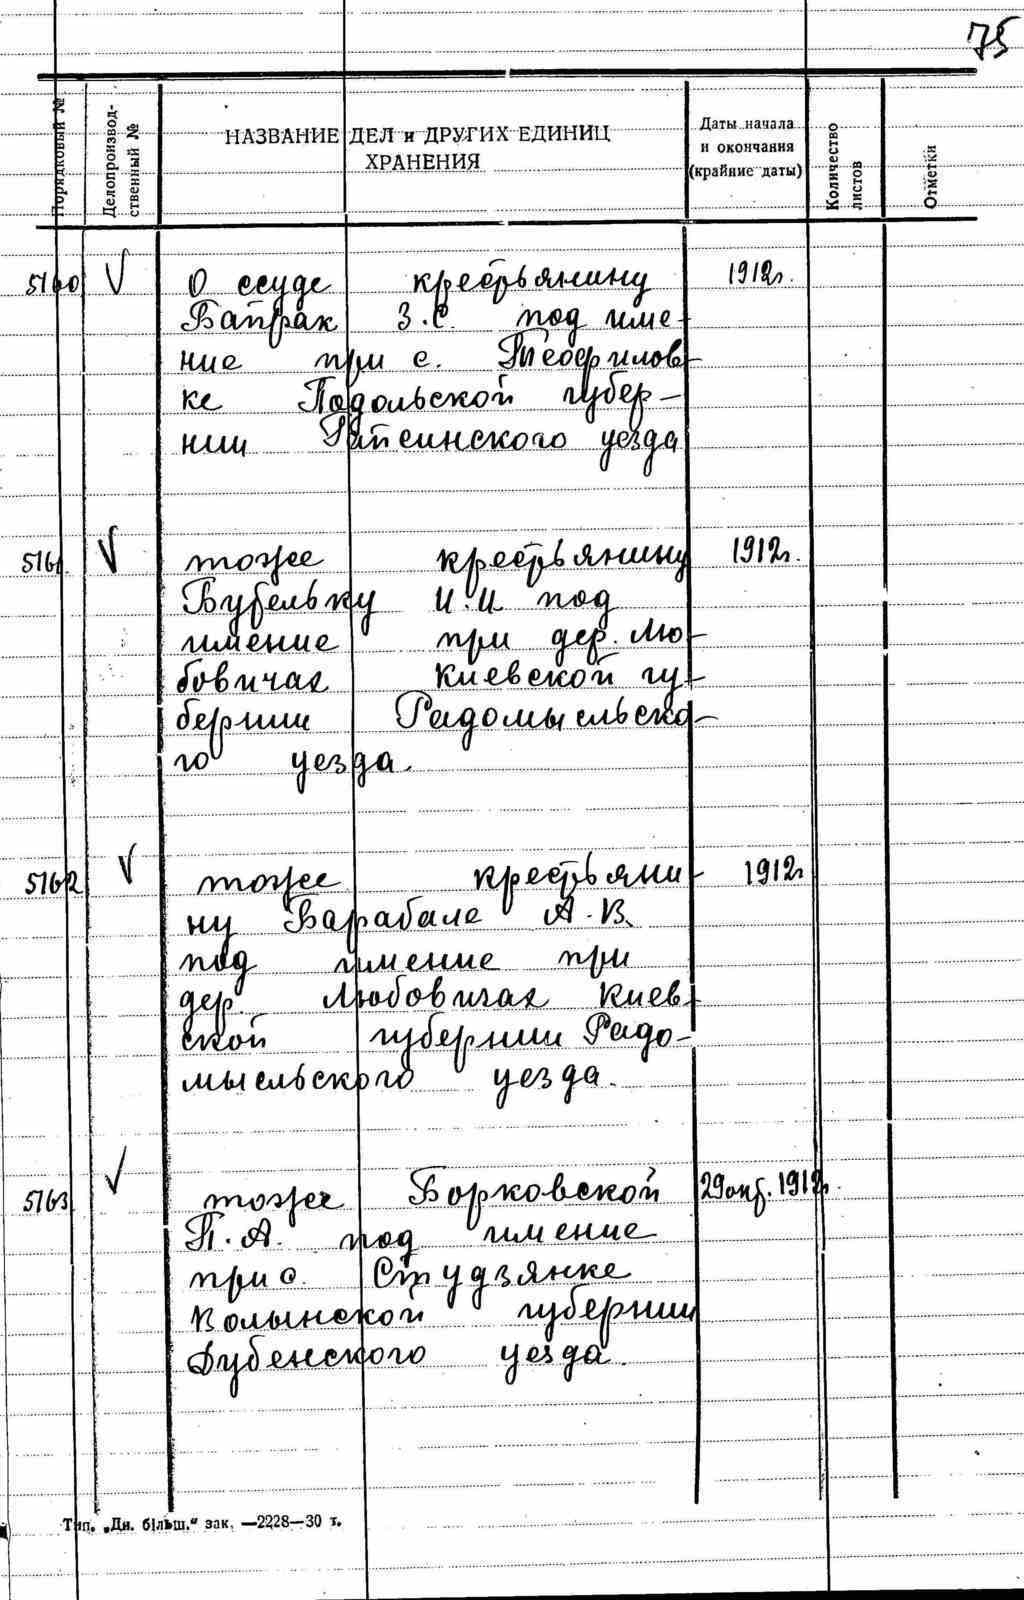 75
Порядковый №
Делопроизвод-
ственный №
НАЗВАНИЕ ДЕЛ и ДРУГИХ ЕДИНИЦ
ХРАНЕНИЯ
Даты начала
и окончания
(крайние даты)
Количество
листов
Отметки
5160 О ссуде крестьянину 1912г.
Байрак З.С. под име-
ние при с. Теофилов-
ке Подольской губер-
нии уезда
5161. тоже крестьянину 1912г.
Бубельку И.И под
имение при дер. Лю-
бовичах Киевской гу-
бернии Радомысльско-
го уезда.
5162 тоже крестьяни- 1912г
ну Барабале А.В.
под имение при
дер. Любовичах Киев-
ской губернии Радо-
мысльского уезда.
5163 тоже Борковской 29 окт. 1912г.
П.А. под имение
при с. Студзянке
Волынской губернии
Дубенского уезда.
Тип. „Дн. більш.“ зак. —2228—30 т.